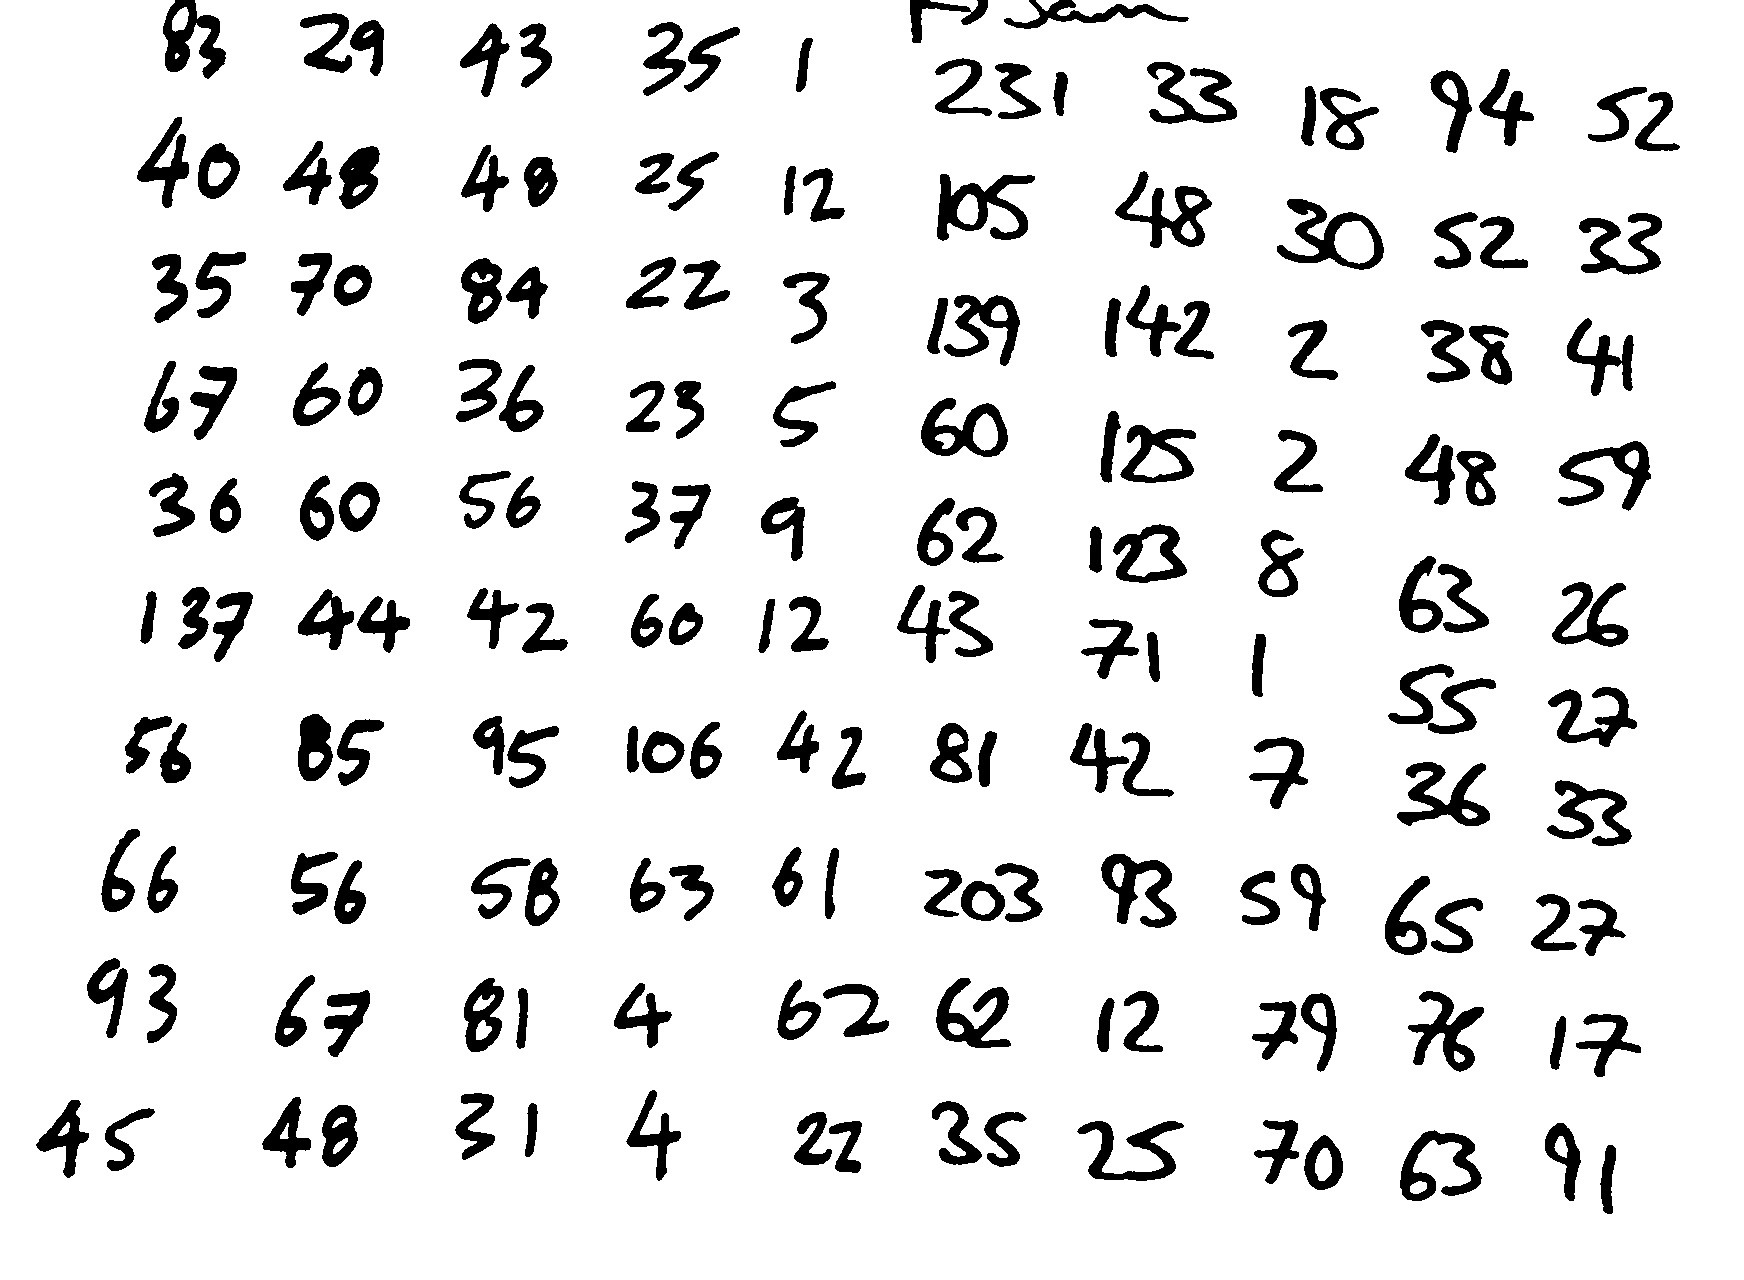 83 29 43 35 1 231 33 18 94 52
40 48 48 25 12 105 48 30 52 33
35 70 84 22 3 139 142 2 38 41
67 60 36 23 5 60 125 2 48 59
36 60 56 37 9 62 123 8 63 26
137 44 42 60 12 43 71 1 55 27
56 85 95 106 42 81 42 7 36 33
66 56 58 63 61 203 93 59 65 27
93 67 81 4 62 62 12 79 76 17
45 48 31 4 22 35 25 70 63 91